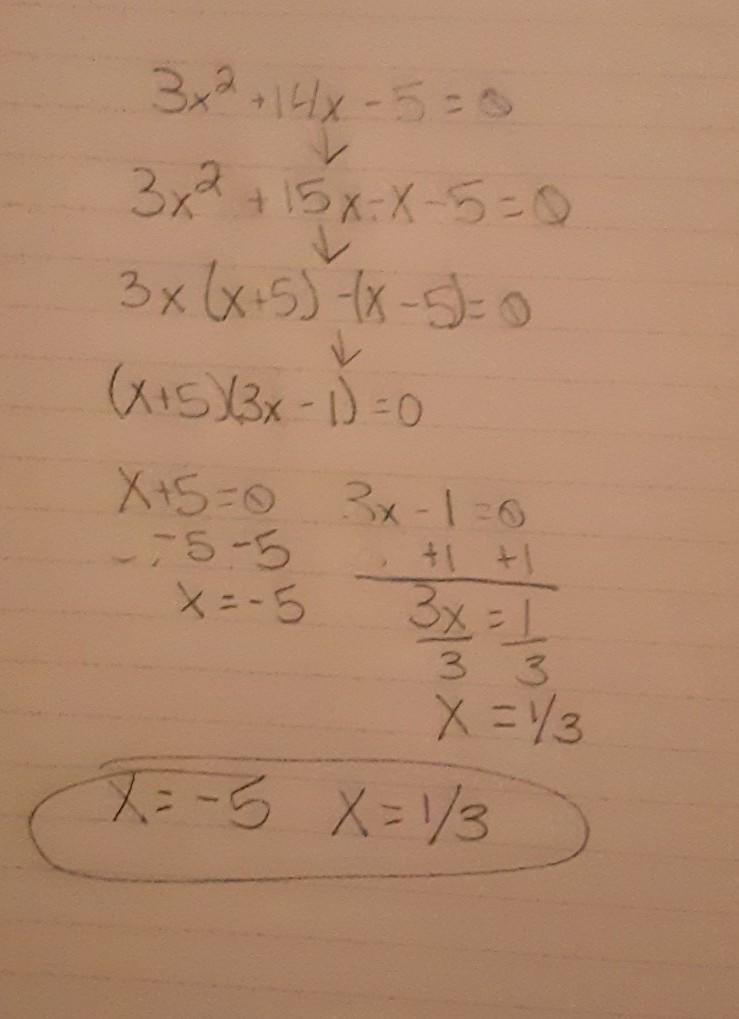 3x² + 14x - 5 = 0
↓
3x² + 15x - x - 5 = 0
↓
3x (x+5) - (x - 5) = 0
↓
(x+5)(3x - 1) = 0
x+5=0 3x - 1 = 0
-5 -5 +1 +1
x = -5 3x/3 = 1/3
x = 1/3
x = -5 x = 1/3